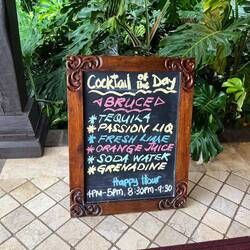 Cocktail of the Day
BRUCE
* TEQUILA
* PASSION LIQ
* FRESH LIME
* ORANGE JUICE
* SODA WATER
* GRENADINE
Happy Hour
4PM-5PM, 8:30PM-9:30